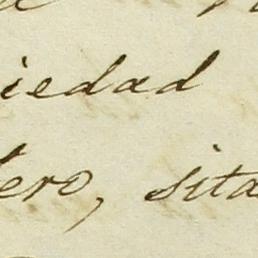 iedad
ero, sita